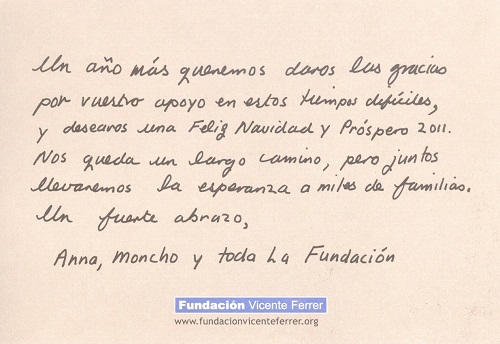 Un año más queremos daros las gracias
por vuestro apoyo en estos tiempos difíciles,
y desearos una Feliz Navidad y Próspero 2011.
Nos queda un largo camino, pero juntos
llevaremos la esperanza a miles de familias.
Un fuerte abrazo,
Anna, Moncho y toda La Fundación
Fundación Vicente Ferrer
www.fundacionvicenteferrer.org